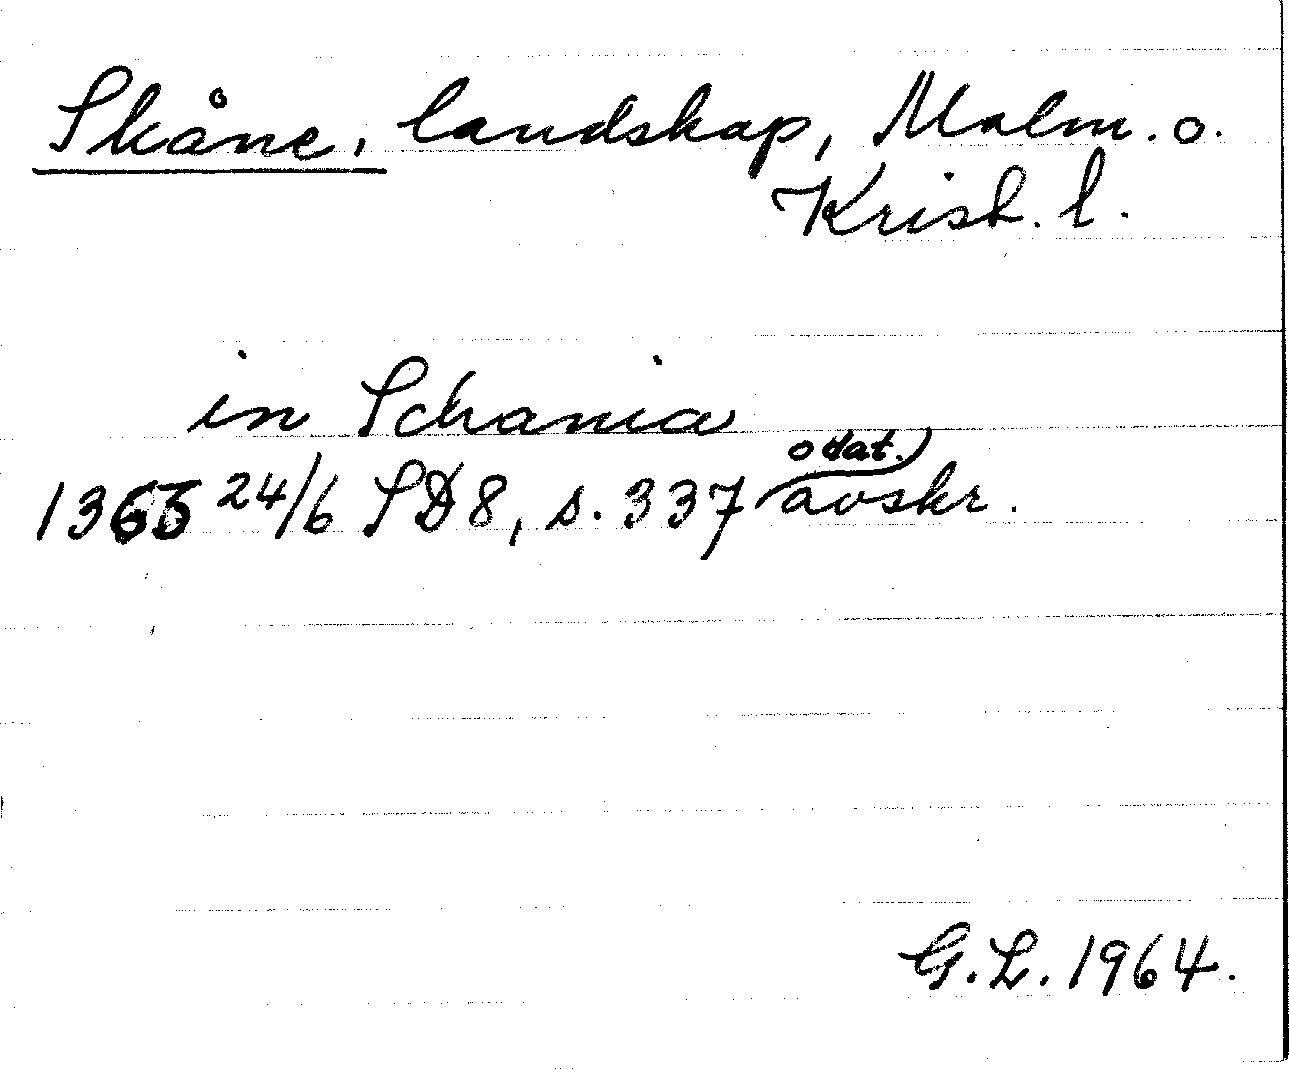 Skåne, landskap, Malm. o.
Krist. l.
in Schania
1365 24/6 SD 8, s. 337 odat. avskr.
G.L. 1964.